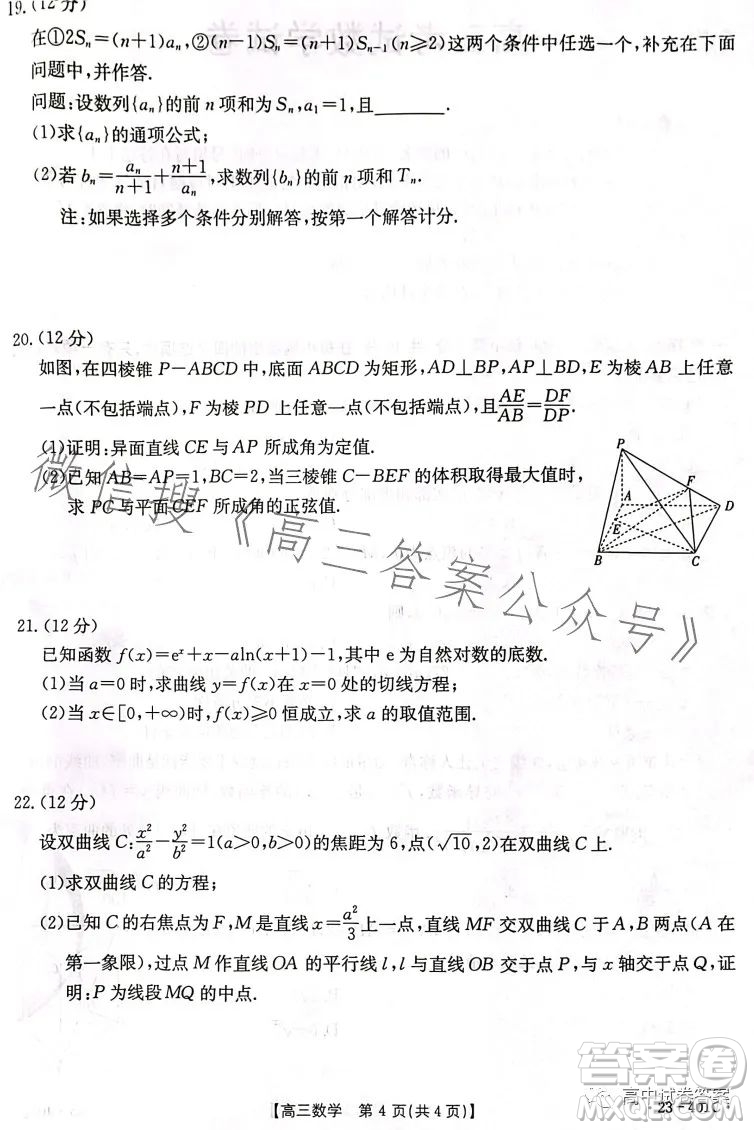 19. (12 分)
在①2Sₙ=(n+1)aₙ,②(n−1)Sₙ=(n+1)Sₙ₋₁(n≥2)这两个条件中任选一个,补充在下面
问题中,并作答.
问题:设数列{aₙ}的前 n 项和为 Sₙ,a₁=1,且________.
(1)求{aₙ}的通项公式;
(2)若 bₙ=aₙ/(n+1)+(n+1)/aₙ,求数列{bₙ}的前 n 项和 Tₙ.
注:如果选择多个条件分别解答,按第一个解答计分.
20. (12 分)
如图,在四棱锥 P−ABCD 中,底面 ABCD 为矩形,AD⊥BP,AP⊥BD,E 为棱 AB 上任意
一点(不包括端点),F 为棱 PD 上任意一点(不包括端点),且AE/AB=DF/DP.
(1)证明:异面直线 CE 与 AP 所成角为定值.
(2)已知 AB=AP=1,BC=2,当三棱锥 C−BEF 的体积取得最大值时,
求 PC 与平面 CEF 所成角的正弦值.
P
F
A
D
E
B
C
21. (12 分)
已知函数 f(x)=eˣ+x−aln(x+1)−1,其中 e 为自然对数的底数.
(1)当 a=0 时,求曲线 y=f(x)在 x=0 处的切线方程;
(2)当 x∈[0,+∞)时,f(x)≥0 恒成立,求 a 的取值范围.
22. (12 分)
设双曲线 C:x²/a²−y²/b²=1(a>0,b>0)的焦距为 6,(√10,2)在双曲线 C 上.
(1)求双曲线 C 的方程;
(2)已知 C 的右焦点为 F,M 是直线 x=a²/3上一点,直线 MF 交双曲线 C 于 A,B 两点(A 在
第一象限),过点 M 作直线 OA 的平行线 l,l 与直线 OB 交于点 P,与 x 轴交于点 Q,证
明:P 为线段 MQ 的中点.
微信搜《高三答案公众号》
【高三数学 第 4 页(共 4 页)】
23−401C
高中试卷答案
答案圈
MXQE.COM